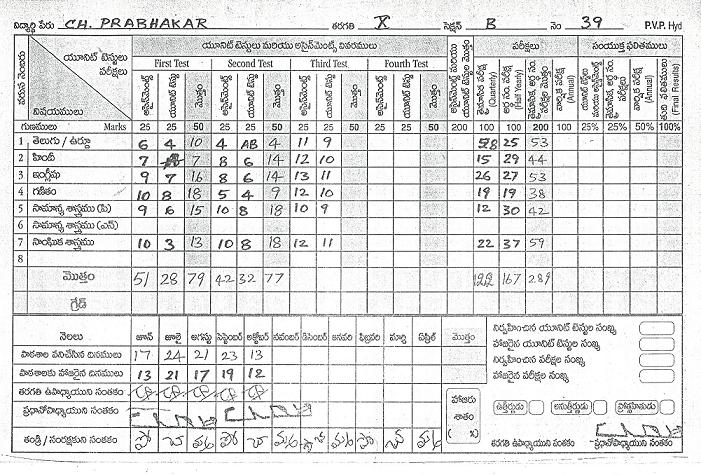 విద్యార్థి పేరు CH. PRABHAKAR తరగతి X సెక్షన్ B నెం 39 P.V.P. Hyd
యూనిట్ టెస్టులు మరియు అసైన్‌మెంట్స్ వివరములు పరీక్షలు సంయుక్త ఫలితములు
వరుస నెంబరు యూనిట్ టెస్టులు పరీక్షలు విషయములు
First Test Second Test Third Test Fourth Test
అసైన్‌మెంట్స్ యూనిట్ టెస్టు మొత్తం అసైన్‌మెంట్స్ యూనిట్ టెస్టు మొత్తం అసైన్‌మెంట్స్ యూనిట్ టెస్టు మొత్తం అసైన్‌మెంట్స్ యూనిట్ టెస్టు మొత్తం (Quarterly) (Half Yearly) (Annual) (Annual) (Final Results)
గుణములు Marks 25 25 50 25 25 50 25 25 50 25 25 50 200 100 100 200 100 25% 25% 50% 100%
1 తెలుగు / ఉర్దూ 6 4 10 4 AB 4 11 9 28 25 53
2 హిందీ 7 7 8 6 14 12 10 15 29 44
3 ఇంగ్లీషు 9 7 16 8 6 14 13 11 26 27 53
4 గణితం 10 8 18 5 4 9 12 10 19 19 38
5 సామాన్య శాస్త్రము (పి) 9 6 15 10 8 18 10 9 12 30 42
6 సామాన్య శాస్త్రము (ఎన్)
7 సాంఘిక శాస్త్రము 10 3 13 10 8 18 12 11 22 37 59
8
మొత్తం 51 28 79 42 32 77 122 167 289
గ్రేడ్
నెలలు జూన్ జూలై ఆగస్టు సెప్టెంబర్ అక్టోబర్ నవంబర్ డిసెంబర్ జనవరి ఫిబ్రవరి మార్చి ఏప్రిల్ మొత్తం
పాఠశాల పనిచేసిన దినములు 17 24 21 23 13
పాఠశాలకు హాజరైన దినములు 13 21 17 19 12
తరగతి ఉపాధ్యాయుని సంతకం
ప్రధానోపాధ్యాయుని సంతకం
తండ్రి / సంరక్షకుని సంతకం
నిర్వహించిన యూనిట్ టెస్టుల సంఖ్య
హాజరైన యూనిట్ టెస్టుల సంఖ్య
నిర్వహించిన పరీక్షల సంఖ్య
హాజరైన పరీక్షల సంఖ్య
హాజరు శాతం ( % )
ఉత్తీర్ణుడు అనుత్తీర్ణుడు ప్రోత్సాహితుడు
తరగతి ఉపాధ్యాయుని సంతకం ప్రధానోపాధ్యాయుని సంతకం